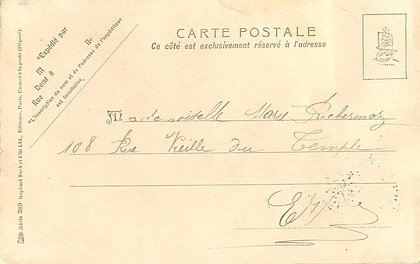 CARTE POSTALE
Ce côté est exclusivement réservé à l'adresse
"Expédié par
M
Demt à
Rue
No
"L'inscription du nom et de l'adresse de l'expéditeur
est facultative.
Mademoiselle Marie
108 Rue Vieille du Temple
E/V
Série 389 Raphael Tuck et Fils Ltd. Editeurs, Paris. Un mot à la poste (Déposé).